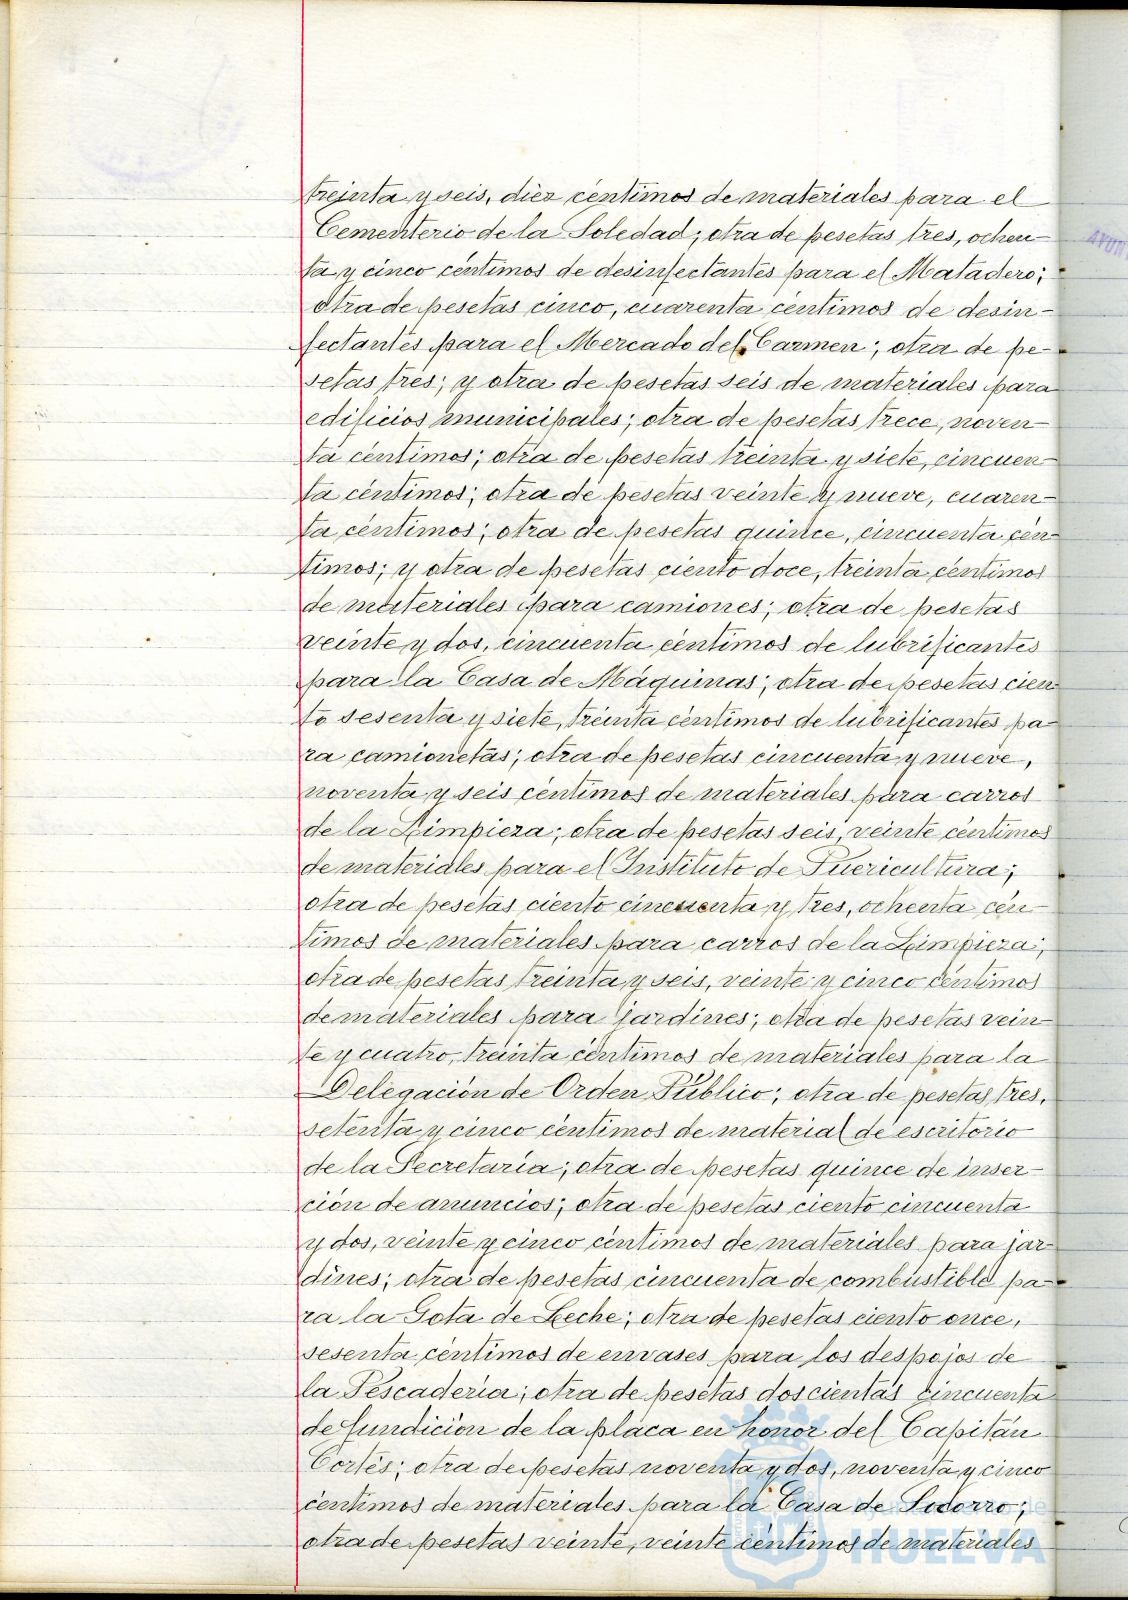 treinta y seis, diez céntimos de materiales para el
Cementerio de la Soledad; otra de pesetas tres, ochen-
ta y cinco céntimos de desinfectantes para el Matadero;
otra de pesetas cinco, cuarenta céntimos de desin-
fectantes para el Mercado del Carmen; otra de pe-
setas tres; y otra de pesetas seis de materiales para
edificios municipales; otra de pesetas trece, noven-
ta céntimos; otra de pesetas treinta y siete, cincuen-
ta céntimos; otra de pesetas veinte y nueve, cuaren-
ta céntimos; otra de pesetas quince, cincuenta cén-
timos; y otra de pesetas ciento doce, treinta céntimos
de materiales para camiones; otra de pesetas
veinte y dos, cincuenta céntimos de lubrificantes
para la Casa de Máquinas; otra de pesetas cien-
to sesenta y siete, treinta céntimos de lubrificantes pa-
ra camionetas; otra de pesetas cincuenta y nueve,
noventa y seis céntimos de materiales para carros
de la Limpieza; otra de pesetas seis, veinte céntimos
de materiales para el Instituto de Puericultura;
otra de pesetas ciento cincuenta y tres, ochenta cén-
timos de materiales para carros de la Limpieza;
otra de pesetas treinta y seis, veinte y cinco céntimos
de materiales para jardines; otra de pesetas vein-
te y cuatro, treinta céntimos de materiales para la
Delegación de Orden Público; otra de pesetas tres,
setenta y cinco céntimos de material de escritorio
de la Secretaría; otra de pesetas quince de inser-
ción de anuncios; otra de pesetas ciento cincuenta
y dos, veinte y cinco céntimos de materiales para jar-
dines; otra de pesetas cincuenta de combustible pa-
ra la Gota de Leche; otra de pesetas ciento once,
sesenta céntimos de envases para los despojos de
la Pescadería; otra de pesetas doscientas cincuenta
de fundición de la placa en honor del Capitán
Cortés; otra de pesetas noventa y dos, noventa y cinco
céntimos de materiales para la Casa de Socorro;
otra de pesetas veinte, veinte céntimos de materiales
Ayuntamiento de
HUELVA